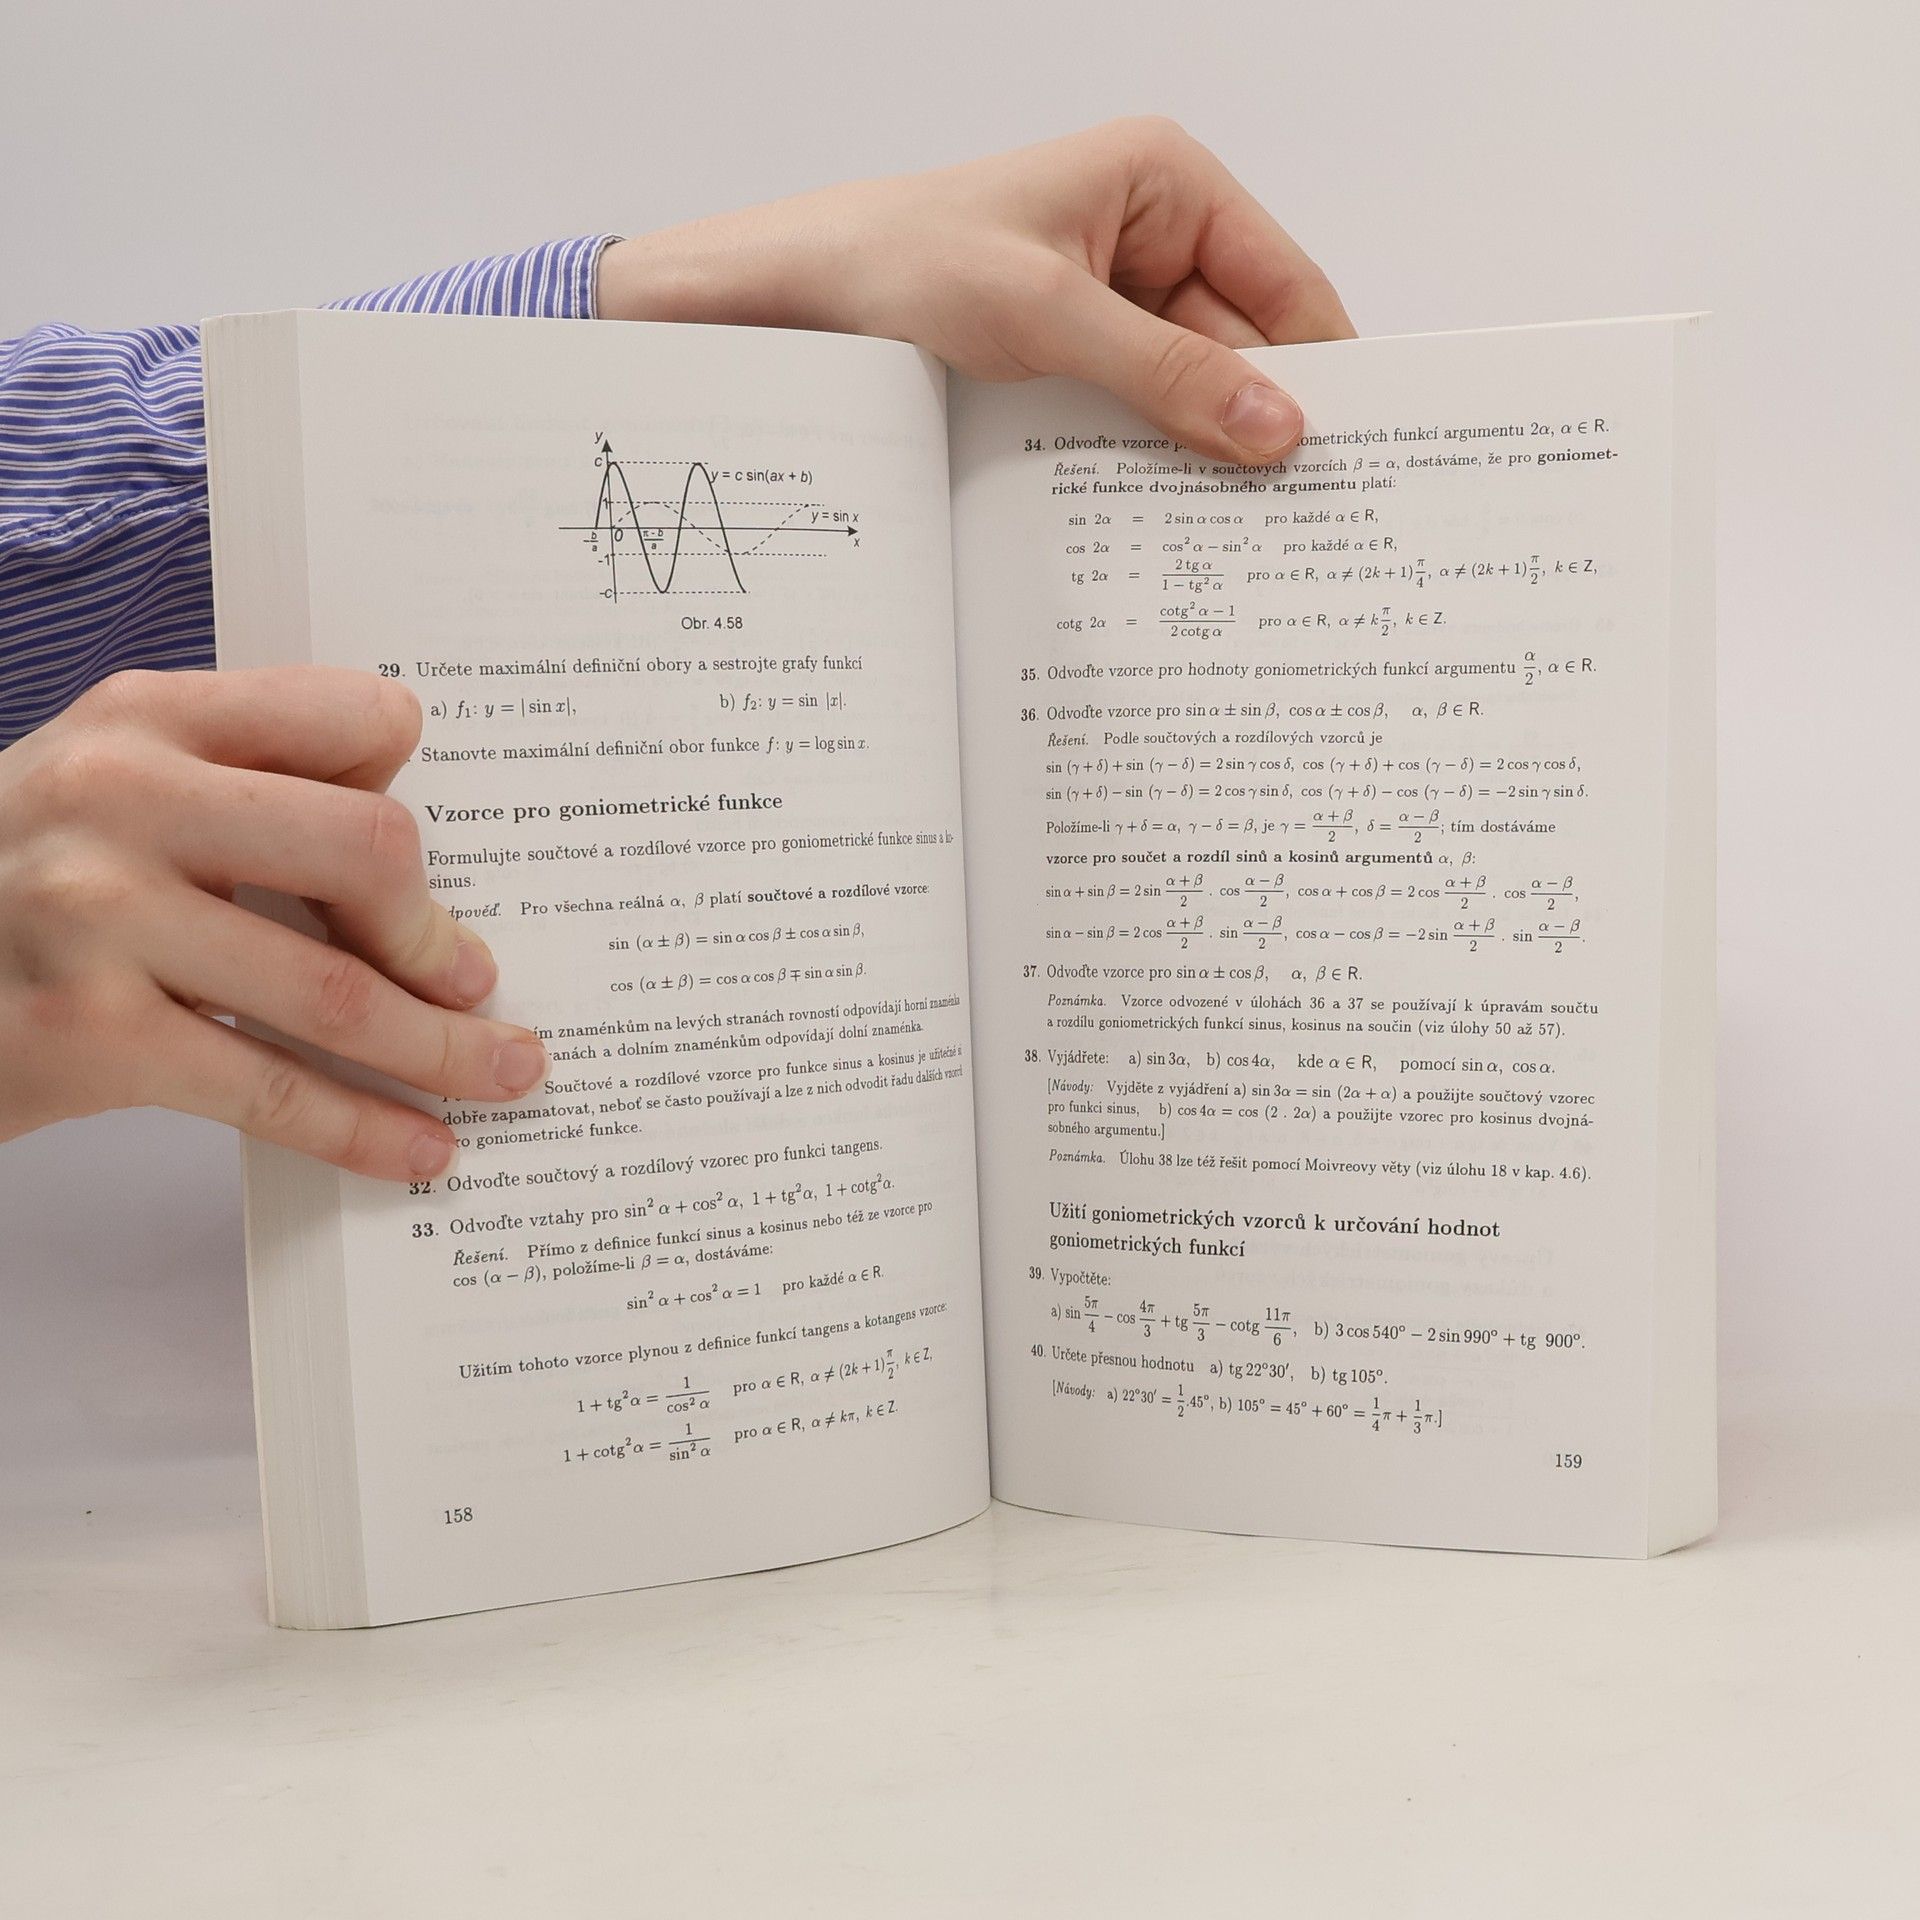 y
c
y = c sin(ax + b)
1
y = sin x
-b/a
0
π - b/a
x
-1
-c
Obr. 4.58
29. Určete maximální definiční obory a sestrojte grafy funkcí
a) f₁: y = | sin x|, b) f₂: y = sin |x|.
. Stanovte maximální definiční obor funkce f: y = log sin x.
Vzorce pro goniometrické funkce
Formulujte součtové a rozdílové vzorce pro goniometrické funkce sinus a ko-
sinus.
dpověď. Pro všechna reálná α, β platí součtové a rozdílové vzorce:
sin (α ± β) = sin α cos β ± cos α sin β,
cos (α ± β) = cos α cos β ∓ sin α sin β.
ím znaménkům na levých stranách rovností odpovídají horní znaménka
anách a dolním znaménkům odpovídají dolní znaménka.
Součtové a rozdílové vzorce pro funkce sinus a kosinus je užitečné si
dobře zapamatovat, neboť se často používají a lze z nich odvodit řadu dalších vzorců
ro goniometrické funkce.
32. Odvoďte součtový a rozdílový vzorec pro funkci tangens.
33. Odvoďte vztahy pro sin² α + cos² α, 1 + tg²α, 1 + cotg²α.
Řešení. Přímo z definice funkcí sinus a kosinus nebo též ze vzorce pro
cos (α − β), položíme-li β = α, dostáváme:
sin² α + cos² α = 1 pro každé α ∈ R.
Užitím tohoto vzorce plynou z definice funkcí tangens a kotangens vzorce:
1 + tg²α = 1/cos² α pro α ∈ R, α ≠ (2k + 1)π/2, k ∈ Z,
1 + cotg²α = 1/sin² α pro α ∈ R, α ≠ kπ, k ∈ Z.
158
34. Odvoďte vzorce p ometrických funkcí argumentu 2α, α ∈ R.
Řešení. Položíme-li v součtových vzorcích β = α, dostáváme, že pro goniomet-
rické funkce dvojnásobného argumentu platí:
sin 2α = 2 sin α cos α pro každé α ∈ R,
cos 2α = cos² α − sin² α pro každé α ∈ R,
tg 2α = 2 tg α/1 − tg² α pro α ∈ R, α ≠ (2k + 1)π/4, α ≠ (2k + 1)π/2, k ∈ Z,
cotg 2α = cotg² α − 1/2 cotg α pro α ∈ R, α ≠ kπ/2, k ∈ Z.
35. Odvoďte vzorce pro hodnoty goniometrických funkcí argumentu α/2, α ∈ R.
36. Odvoďte vzorce pro sin α ± sin β, cos α ± cos β, α, β ∈ R.
Řešení. Podle součtových a rozdílových vzorců je
sin (γ + δ) + sin (γ − δ) = 2 sin γ cos δ, cos (γ + δ) + cos (γ − δ) = 2 cos γ cos δ,
sin (γ + δ) − sin (γ − δ) = 2 cos γ sin δ, cos (γ + δ) − cos (γ − δ) = −2 sin γ sin δ.
Položíme-li γ + δ = α, γ − δ = β, je γ = α + β/2, δ = α − β/2; tím dostáváme
vzorce pro součet a rozdíl sinů a kosinů argumentů α, β:
sin α + sin β = 2 sin α + β/2 . cos α − β/2, cos α + cos β = 2 cos α + β/2 . cos α − β/2,
sin α − sin β = 2 cos α + β/2 . sin α − β/2, cos α − cos β = −2 sin α + β/2 . sin α − β/2.
37. Odvoďte vzorce pro sin α ± cos β, α, β ∈ R.
Poznámka. Vzorce odvozené v úlohách 36 a 37 se používají k úpravám součtu
a rozdílu goniometrických funkcí sinus, kosinus na součin (viz úlohy 50 až 57).
38. Vyjádřete: a) sin 3α, b) cos 4α, kde α ∈ R, pomocí sin α, cos α.
[Návody: Vyjděte z vyjádření a) sin 3α = sin (2α + α) a použijte součtový vzorec
pro funkci sinus, b) cos 4α = cos (2 . 2α) a použijte vzorec pro kosinus dvojná-
sobného argumentu.]
Poznámka. Úlohu 38 lze též řešit pomocí Moivreovy věty (viz úlohu 18 v kap. 4.6).
Užití goniometrických vzorců k určování hodnot
goniometrických funkcí
39. Vypočtěte:
a) sin 5π/4 − cos 4π/3 + tg 5π/3 − cotg 11π/6, b) 3 cos 540° − 2 sin 990° + tg 900°.
40. Určete přesnou hodnotu a) tg 22°30′, b) tg 105°.
[Návody: a) 22°30′ = 1/2.45°, b) 105° = 45° + 60° = 1/4π + 1/3π.]
159